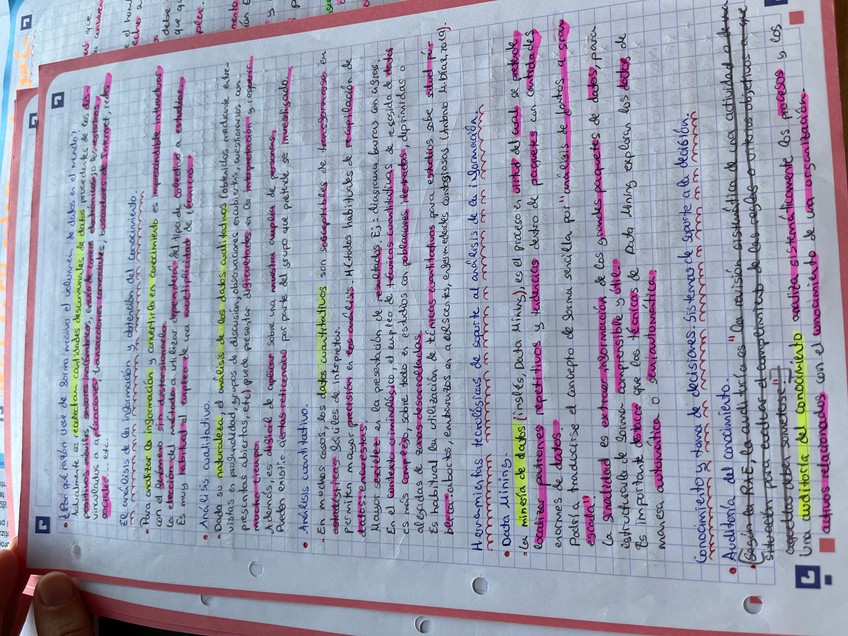 • ¿Por qué razón crece de forma masiva el volumen de datos en el mundo?
Actualmente se recolectan cantidades descomunales de datos procedentes de los dis-
positivos móviles,
vinculados a operaciones, transacciones comerciales, buscadores de Internet, redes,
etc.
El análisis de la información y obtención del conocimiento.
• Para analizar la información y convertirla en conocimiento es imprescindible introducirlo
con el fenómeno sin distorsionarlo.
La elección del método a utilizar dependerá del tipo de colectivo a estudiar.
Es muy habitual el empleo de una multiplicidad de técnicas.
• Análisis cualitativo.
• Dada su naturaleza el análisis de los datos cualitativos (obtenidos mediante entre-
vistas en profundidad, grupos de discusión, observaciones encubiertas, cuestionarios con
preguntas abiertas, etc) puede presentar dificultades en la interpretación y requerir
mucho tiempo.
Además, es difícil de aplicar sobre una muestra amplia de personas.
Pueden existir ciertas reticencias por parte del grupo que pretende ser investigado.
• Análisis cuantitativo.
En muchos casos, los datos cuantitativos son susceptibles de transformarse en
fáciles de interpretar.
Permiten mayor precisión en los análisis. Métodos habituales de recopilación de
datos: encuestas.
Mayor sencillez en la presentación de resultados. Ej: diagrama barras en agros.
En el contexto criminológico, el empleo de técnicas cuantitativas de recogida de datos
es más complejo, sobre todo en estudios con poblaciones iletradas, deprimidas o
alejadas de zonas desarrolladas.
Es habitual la utilización de técnicas cuantitativas para estudios sobre salud pú-
blica: abortos, embarazos en adolescentes, enfermedades contagiosas 2019).
Herramientas tecnológicas de soporte al análisis de la información
• Data Mining.
• La minería de datos (inglés, Data Mining), es el proceso en virtud del cual se pretende
localizar patrones repetitivos y tendencias dentro de paquetes con cantidades
enormes de datos.
Podría traducirse el concepto de forma sencilla por "análisis de datos a gran
escala".
La finalidad es extraer información de los grandes paquetes de datos, para
estructurarla de forma comprensible y útil.
Es importante destacar que las técnicas de Data Mining exploran los datos de
manera automática o semiautomática.
Conocimiento y toma de decisiones. Sistemas de soporte a la decisión.
• Auditoría del conocimiento.
• Según la RAE la auditoría es "la revisión sistemática de una actividad o de una
situación para evaluar el cumplimiento de las reglas o criterios objetivos a que
aquellas deben someterse".
Una auditoría del conocimiento analiza sistemáticamente los procesos y los
activos relacionados con el conocimiento de una organización.